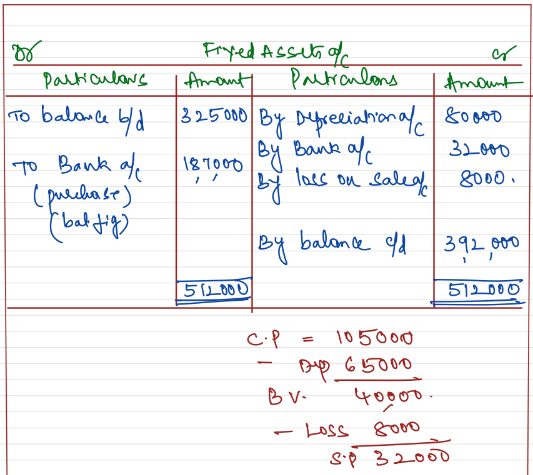 Dr Fixed Assets a/c Cr
Particulars Amount Particulars Amount
To balance b/d 325000 By Depreciation a/c 80000
By Bank a/c 32000
To Bank a/c 187000
(purchase) By loss on sale a/c 8000.
(bal fig)
By balance c/d 392,000
512000 512000
C.P = 105000
- Dep 65000
B V. 40000.
- Loss 8000
S.P 32000